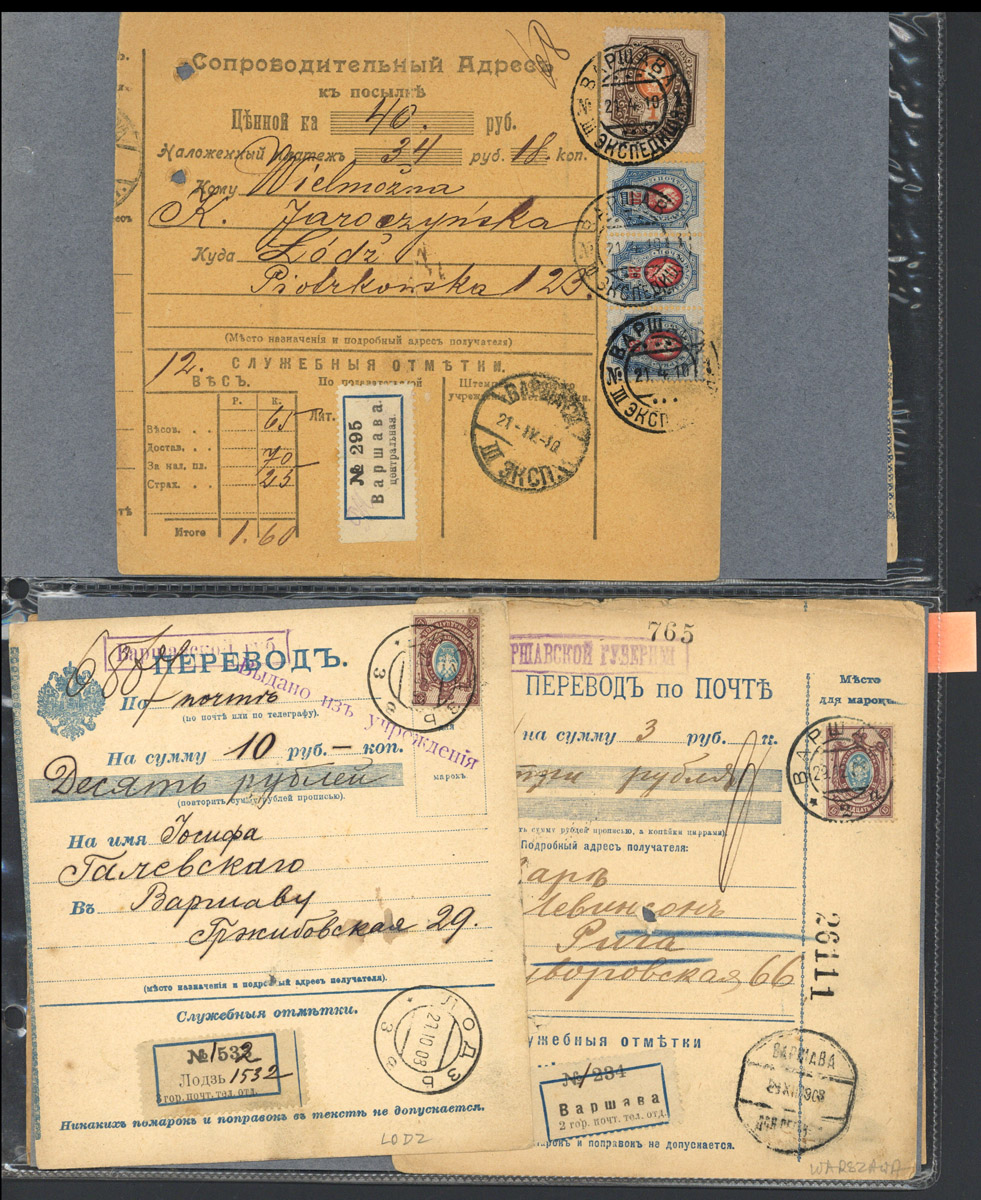 Сопроводительный Адресъ
къ посылкѣ
Цѣнной на 40. руб.
Наложенный платежъ 34 руб. 18. коп.
Кому Wielmożna
K. Jaroczyńska
Куда Łódź
Piotrkowska 123.
(Мѣсто назначенія и подробный адресъ получателя)
12. СЛУЖЕБНЫЯ ОТМѢТКИ.
ВѢСЪ.
Р. К.
Вѣсов. . . 65
Достав. . . 70
За нал. пл. 25
Страх. . .
Итого 1.60
Лит.
№ 295
Варшава.
центральная.
ВАРШАВА
21.4.10
№ III ЭКСПЕДИЦІЯ
ВАРШАВА
21.4.10
№ III ЭКСПЕДИЦ
ВАРШ
21.4.10
№ III ЭКСП
ВАРШАВА
21-IV-10
III ЭКСП.
Варшавской губ.
ПЕРЕВОДЪ.
Выдано изъ учрежденія
По почтѣ
(по почтѣ или по телеграфу).
На сумму 10 руб. — коп.
марокъ
Десять рублей
(повторить сумму рублей прописью).
На имя Іосифа
Галевскаго
Въ Варшаву
Гржибовская 29.
(мѣсто назначенія и подробный адресъ получателя).
Служебныя отмѣтки.
№1532
Лодзь 1532
3 гор. почт. тел. отд.
ЛОДЗЬ
21.10.08
3 е
Никакихъ помарокъ и поправокъ въ текстѣ не допускается.
LODZ
765
РШАВСКОЙ ГУБЕРНІИ
ПЕРЕВОДЪ по ПОЧТѢ
Мѣсто
для марокъ.
на сумму 3 руб. к.
три рубля
ть сумму рублей прописью, а копейки цифрами).
Подробный адресъ получателя:
Левинсонъ
Рига
уворовская 66
26111
ужебныя отмѣтки
№ 234
Варшава
2 гор. почт. тел. отд.
ВАРШ
ВАРШАВА
рокъ и поправокъ не допускается.
WARSZAWA